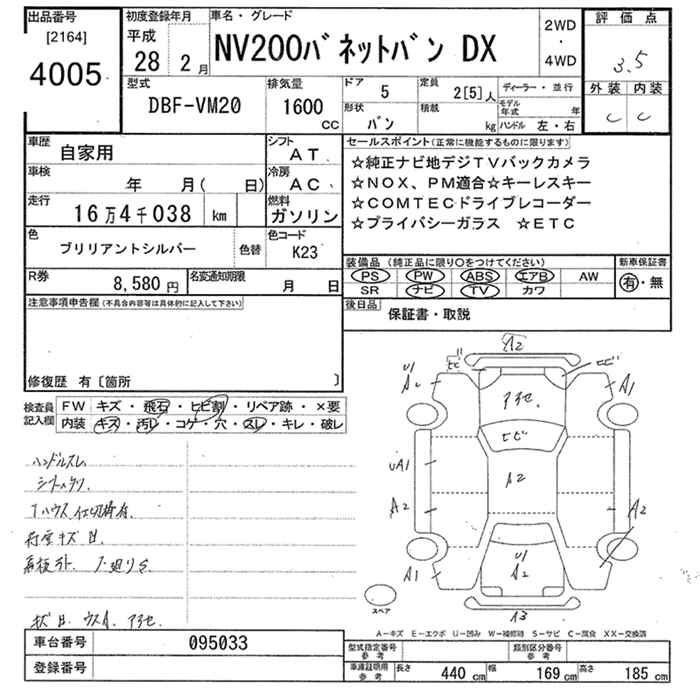 出品番号
[2164]
4005
初度登録年月
平成
28 2月
車名・グレード
NV200バネットバン DX
2WD
・
4WD
評価点
3.5
外装 内装
C C
型式
DBF-VM20
排気量
1600
CC
ドア 5
形状 バン
定員 2[5]人
積載 kg
ディーラー・並行
モデル年式 年
ハンドル 左・右
車歴 自家用
シフト AT
車検 年 月( 日)
冷房 AC
走行 16万4千038 km
燃料 ガソリン
色 ブリリアントシルバー 色替
色コード K23
R券 8,580円
名変通知期限 月 日
セールスポイント(正常に機能するものに限ります)
☆純正ナビ地デジTVバックカメラ
☆NOX、PM適合☆キーレスキー
☆COMTECドライブレコーダー
☆プライバシーガラス ☆ETC
装備品(純正品に限り○をつけてください)
PS PW ABS エアB AW
SR ナビ TV カワ
新車保証書
有・無
後日品 保証書・取説
注意事項申告欄(不具合内容等は具体的に記入して下さい)
修復歴 有〔箇所 〕
検査員記入欄
FW キズ・飛石・ヒビ割・リペア跡・×要
内装 キズ・汚レ・コゲ・穴・スレ・キレ・破レ
ハンドルスレ
A2
ヒビ ヒビ
U1
A2
A1
アラセ.
ヒビ
UA1
A2
A2
A2
U1
A2
A1
A3
スペア
A-キズ E-エクボ U-凹み W-補修跡 S-サビ C-腐食 XX-交換済
車台番号 095033
登録番号
型式指定番号 参考
類別区分番号 参考
車庫証明用 参考
長さ 440 cm 幅 169 cm 高さ 185 cm